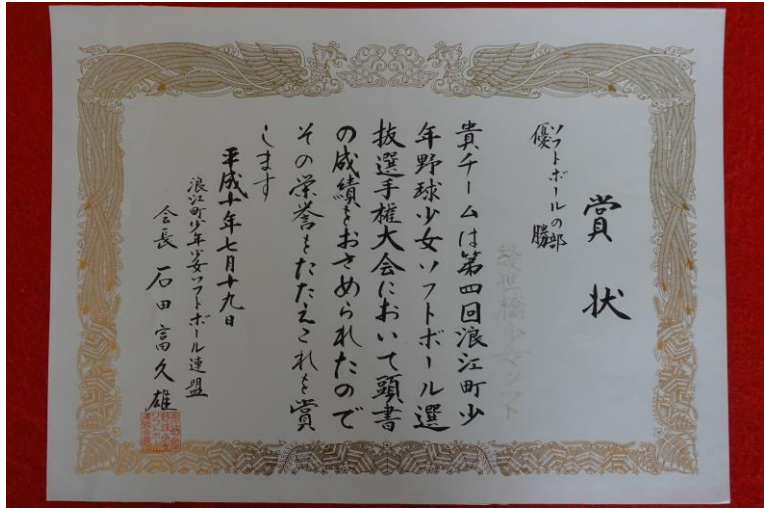 賞状
ソフトボールの部
優勝
幾世橋少女ソフト
貴チームは第四回浪江町少
年野球少女ソフトボール選
抜選手権大会において頭書
の成績をおさめられたので
その栄誉をたたえこれを賞
します
平成十年七月十九日
浪江町少年少女ソフトボール連盟
会長 石田富久雄